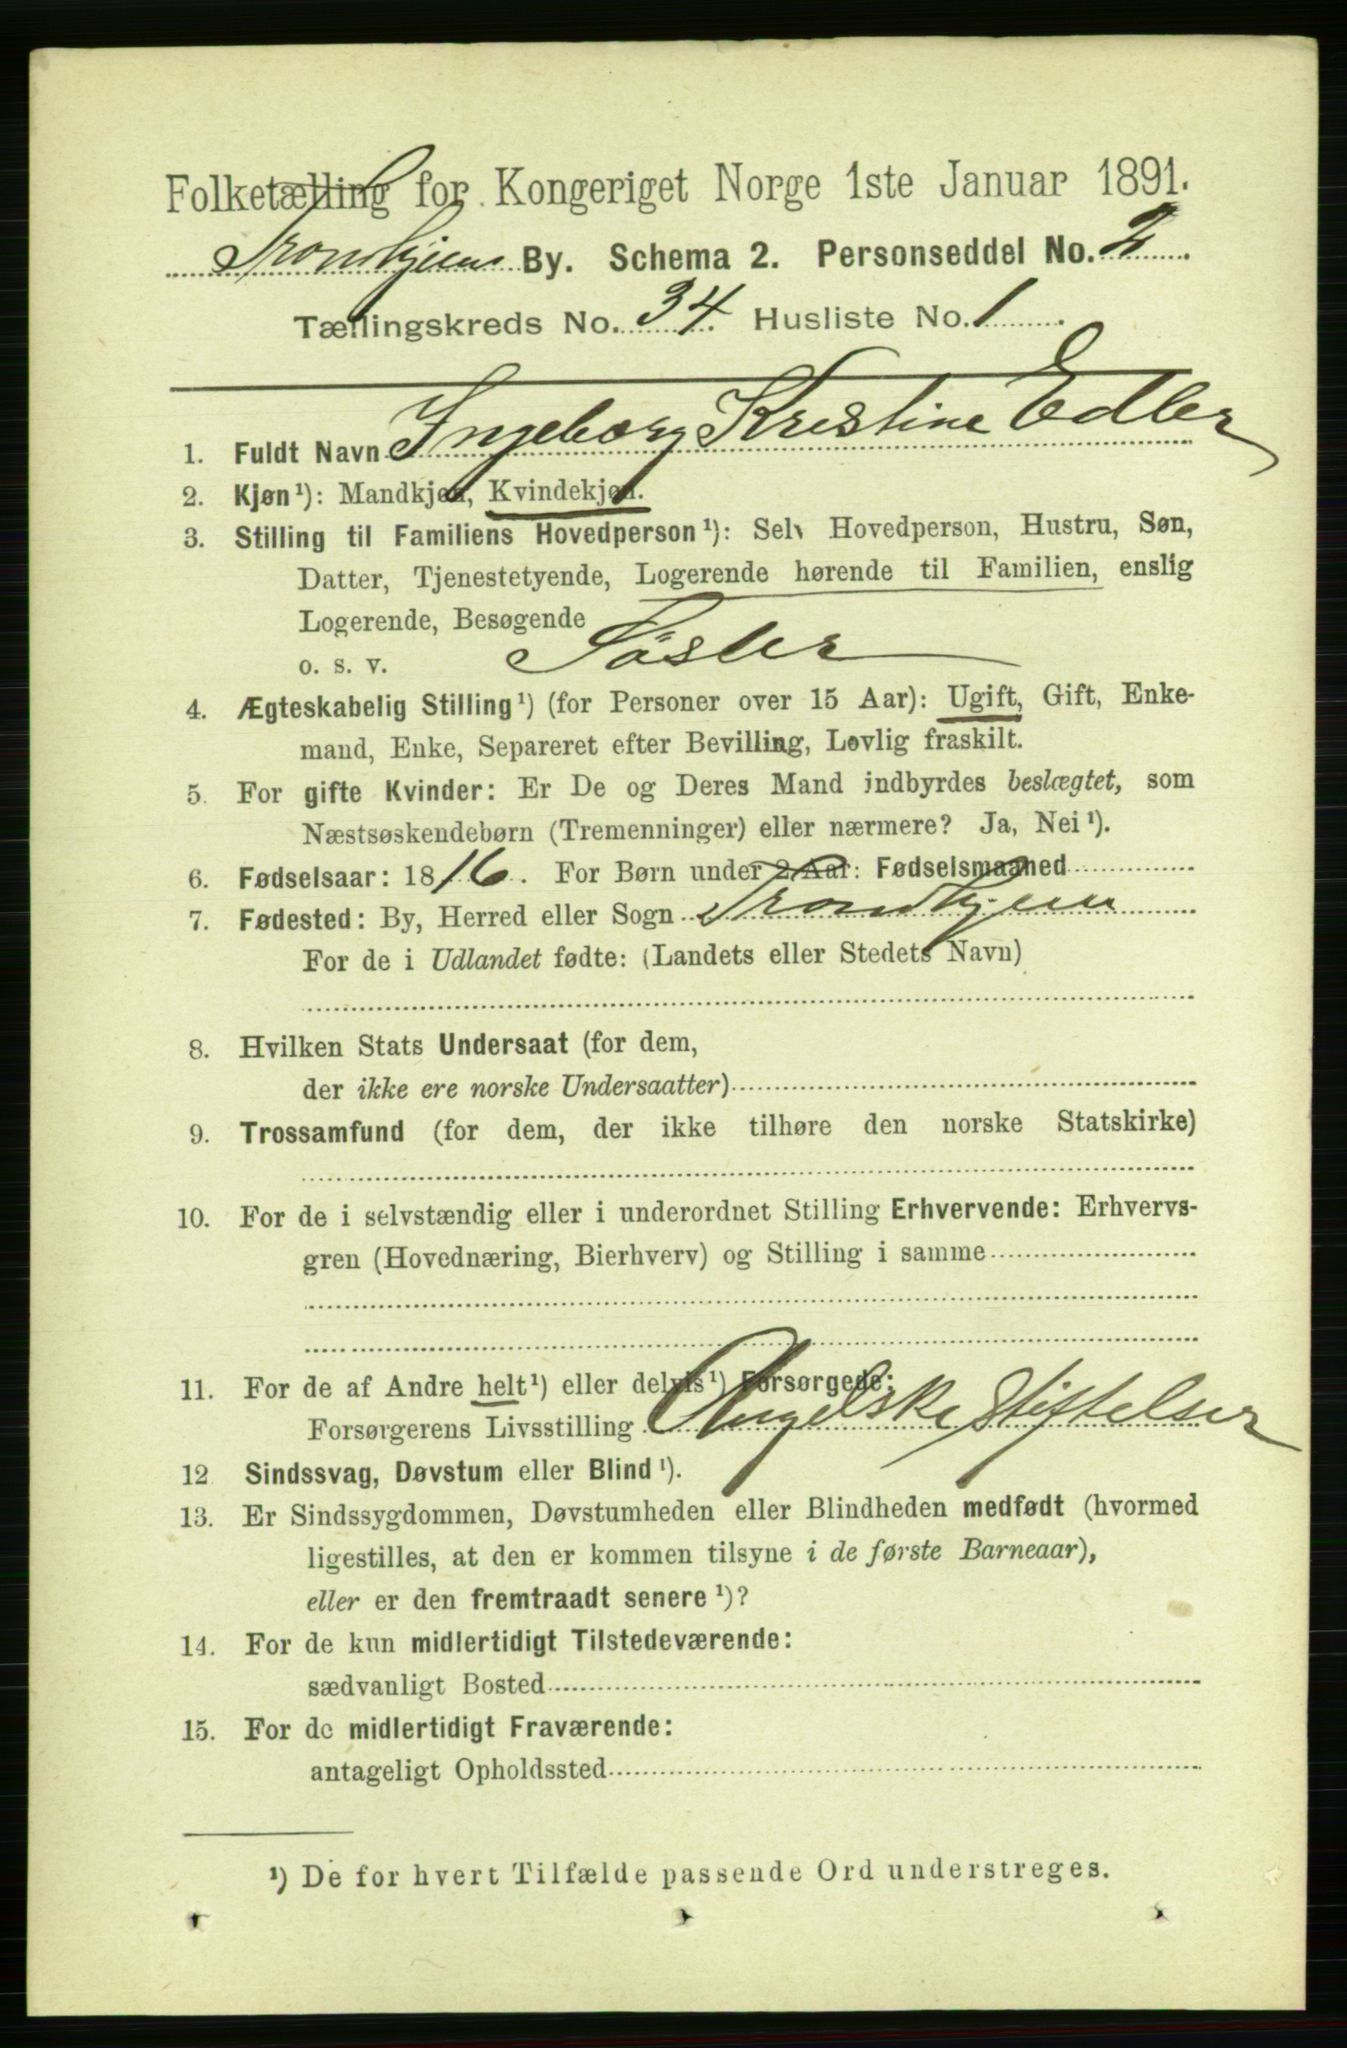 Folketælling for Kongeriget Norge 1ste Januar 1891.
Trondhjems By. Schema 2. Personseddel No. 2
Tællingskreds No. 34. Husliste No. 1
1. Fuldt Navn Ingeborg Kristine Edler
2. Kjøn¹): Mandkjøn, Kvindekjøn.
3. Stilling til Familiens Hovedperson¹): Selv Hovedperson, Hustru, Søn,
Datter, Tjenestetyende, Logerende hørende til Familien, enslig
Logerende, Besøgende
o. s. v. Søster
4. Ægteskabelig Stilling¹) (for Personer over 15 Aar): Ugift, Gift, Enke-
mand, Enke, Separeret efter Bevilling, Lovlig fraskilt.
5. For gifte Kvinder: Er De og Deres Mand indbyrdes beslægtet, som
Næstsøskendebørn (Tremenninger) eller nærmere? Ja, Nei¹).
6. Fødselsaar: 1816. For Børn under 2 Aar: Fødselsmaaned
7. Fødested: By, Herred eller Sogn Trondhjem
For de i Udlandet fødte: (Landets eller Stedets Navn)
8. Hvilken Stats Undersaat (for dem,
der ikke ere norske Undersaatter)
9. Trossamfund (for dem, der ikke tilhøre den norske Statskirke)
10. For de i selvstændig eller i underordnet Stilling Erhvervende: Erhvervs-
gren (Hovednæring, Bierhverv) og Stilling i samme
11. For de af Andre helt¹) eller delvis¹) Forsørgede:
Forsørgerens Livsstilling Angelske Stiftelser
12 Sindssvag, Døvstum eller Blind¹).
13. Er Sindssygdommen, Døvstumheden eller Blindheden medfødt (hvormed
ligestilles, at den er kommen tilsyne i de første Barneaar),
eller er den fremtraadt senere¹)?
14. For de kun midlertidigt Tilstedeværende:
sædvanligt Bosted
15. For de midlertidigt Fraværende:
antageligt Opholdssted
¹) De for hvert Tilfælde passende Ord understreges.